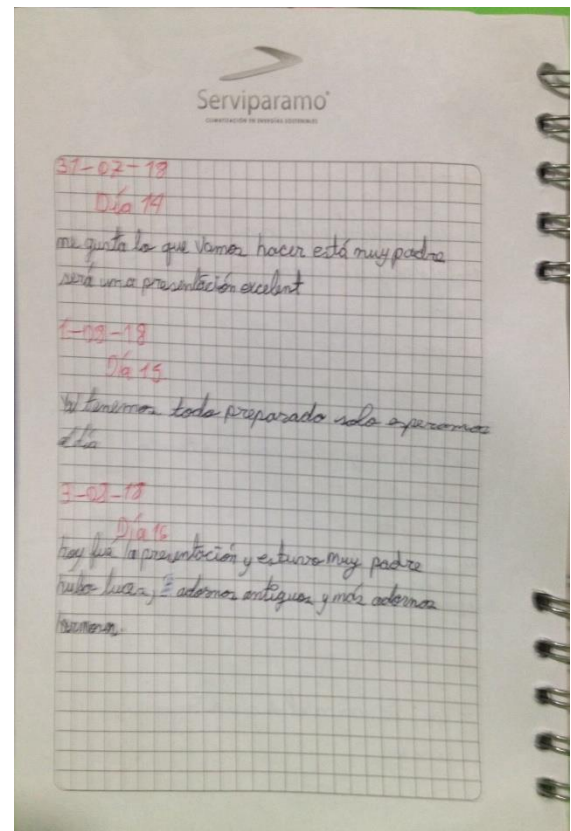 Serviparamo
31-07-18
Día 14
me gusta lo que vamos hacer está muy padre
será una presentación excelent
1-08-18
Día 15
ya tenemos todo preparado solo esperamos
el día
3-08-18
Día 16
hoy fue la presentación y estuvo muy padre
hubo luces, adornos antiguos y más adornos
hermosos.